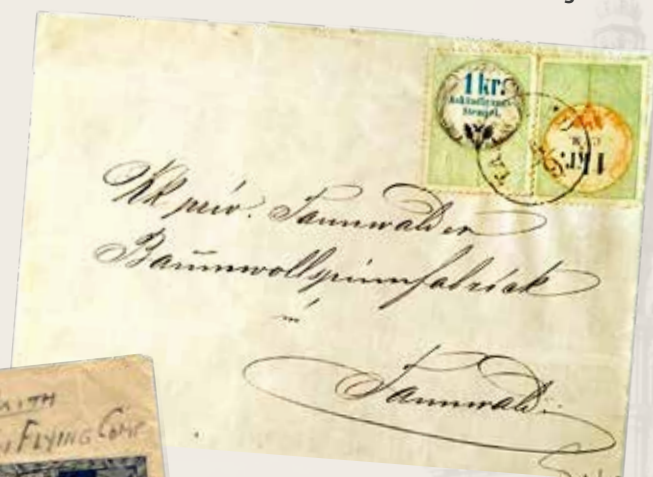 1 kr.
Ankündigungs
Stempel.
1 kr.
KK priv. Tannwalder
Baumwollspinnfabrick
Tannwald.
FLYING COMP